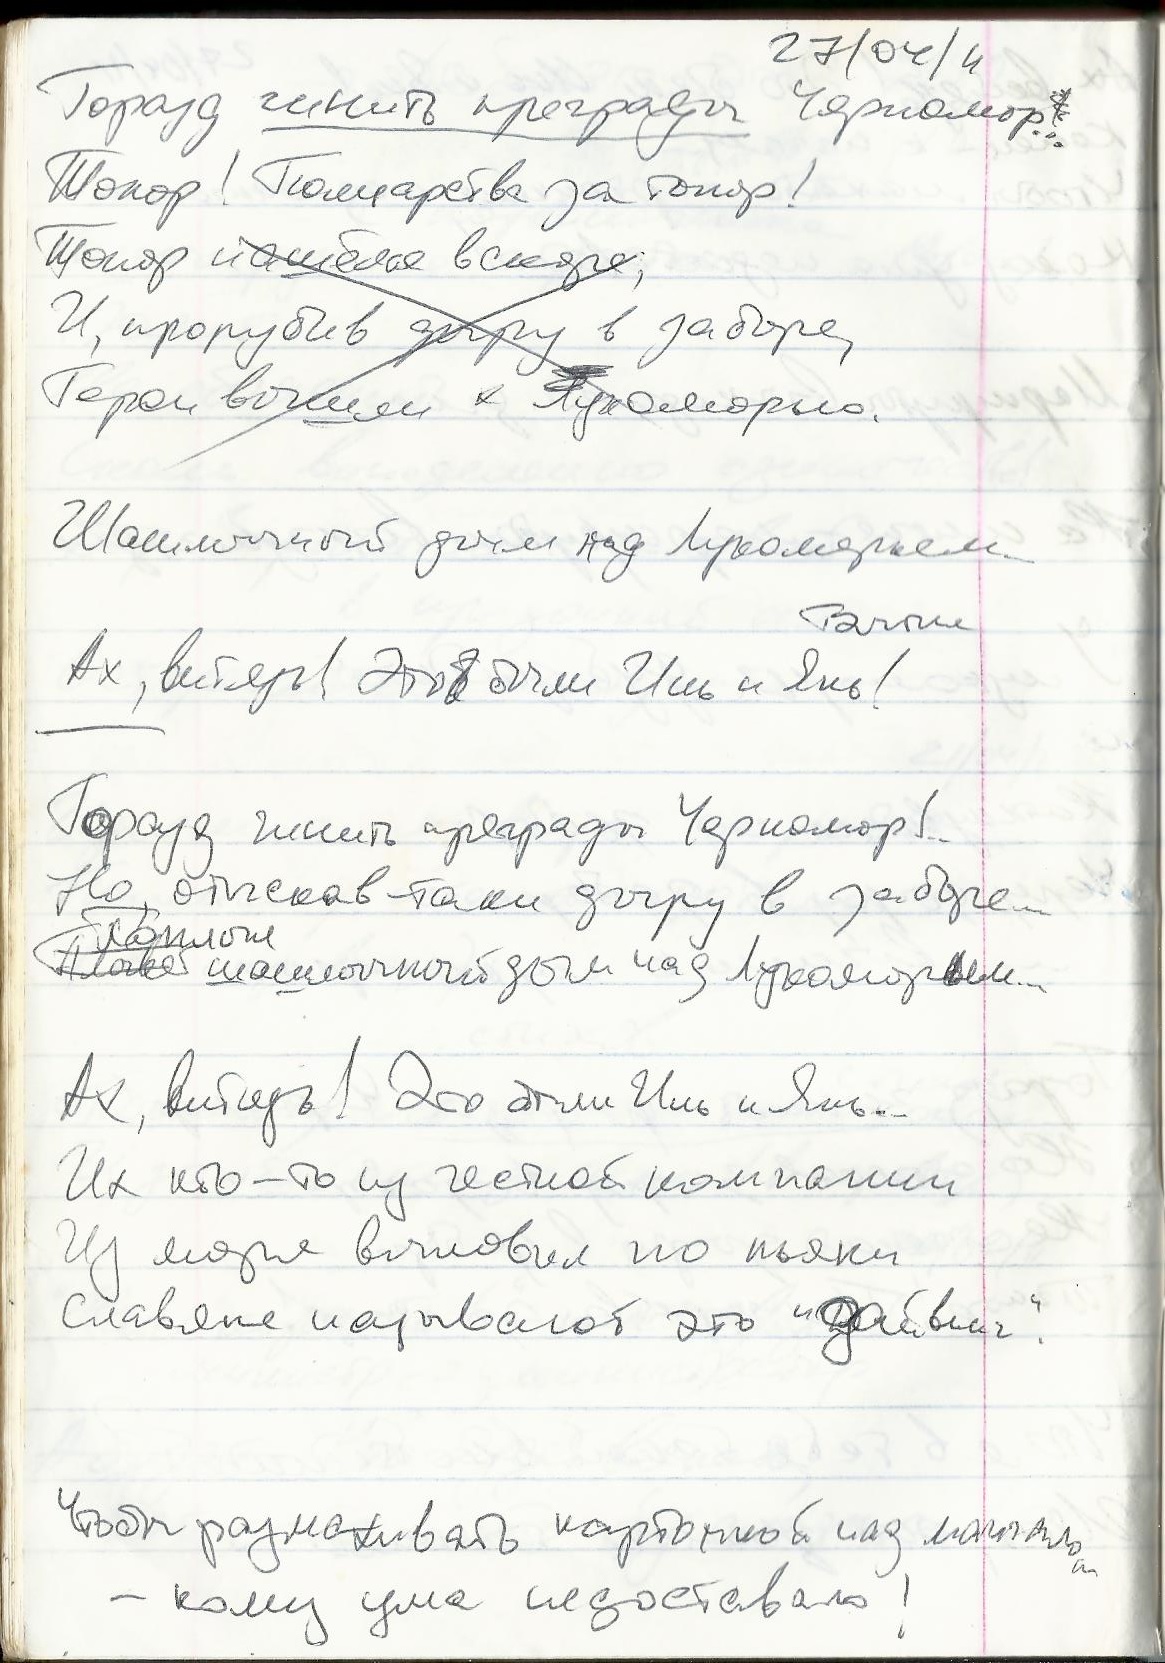 27/04/11
Горазд чинить преграды Черномор!..
Топор! Полцарства за топор!
Топор нашёлся вскоре;
И, прорубив дыру в заборе,
Герои вышли к Лукоморью.
Шашлычный дым над Лукоморьем...
Вэнь
Ах, витязь! Это были Инь и Янь!
Горазд чинить преграды Черномор!..
Но, отыскав-таки дыру в заборе...
Поплыл
шашлычный дым над Лукоморьем...
Ах, витязь! Это были Инь и Янь...
Их кто-то из честной компании
Из моря выловил по пьяни
Славяне называют это "Дайвинг".
Чтобы размахивать картонкой над мангалом
- кому ума недоставало!